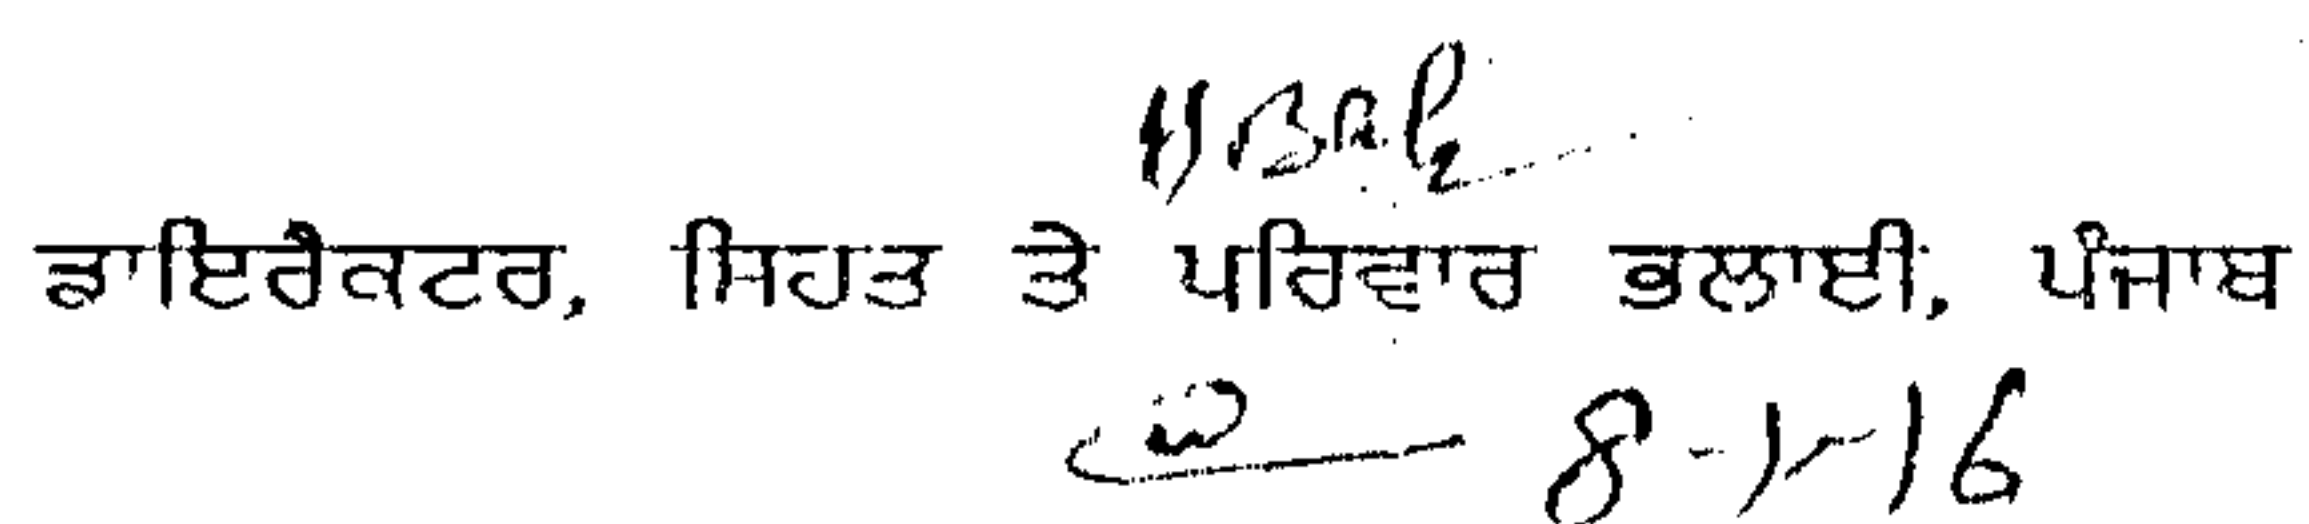 ਡਾਇਰੈਕਟਰ, ਸਿਹਤ ਤੇ ਪਰਿਵਾਰ ਭਲਾਈ, ਪੰਜਾਬ
8-1-16